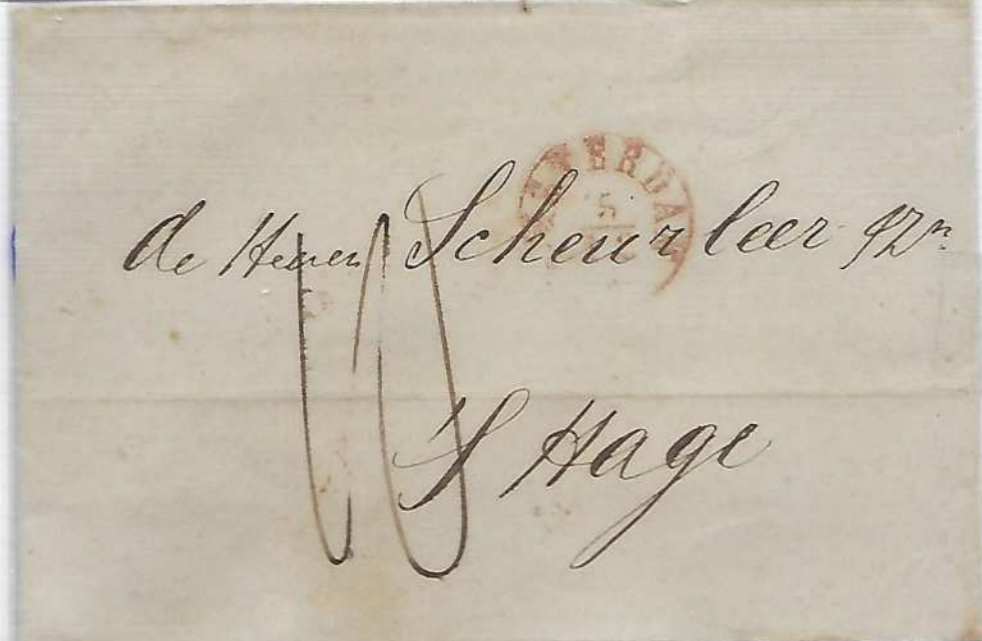 AMSTERDA
5
de Heeren Scheurleer
10
S Hage